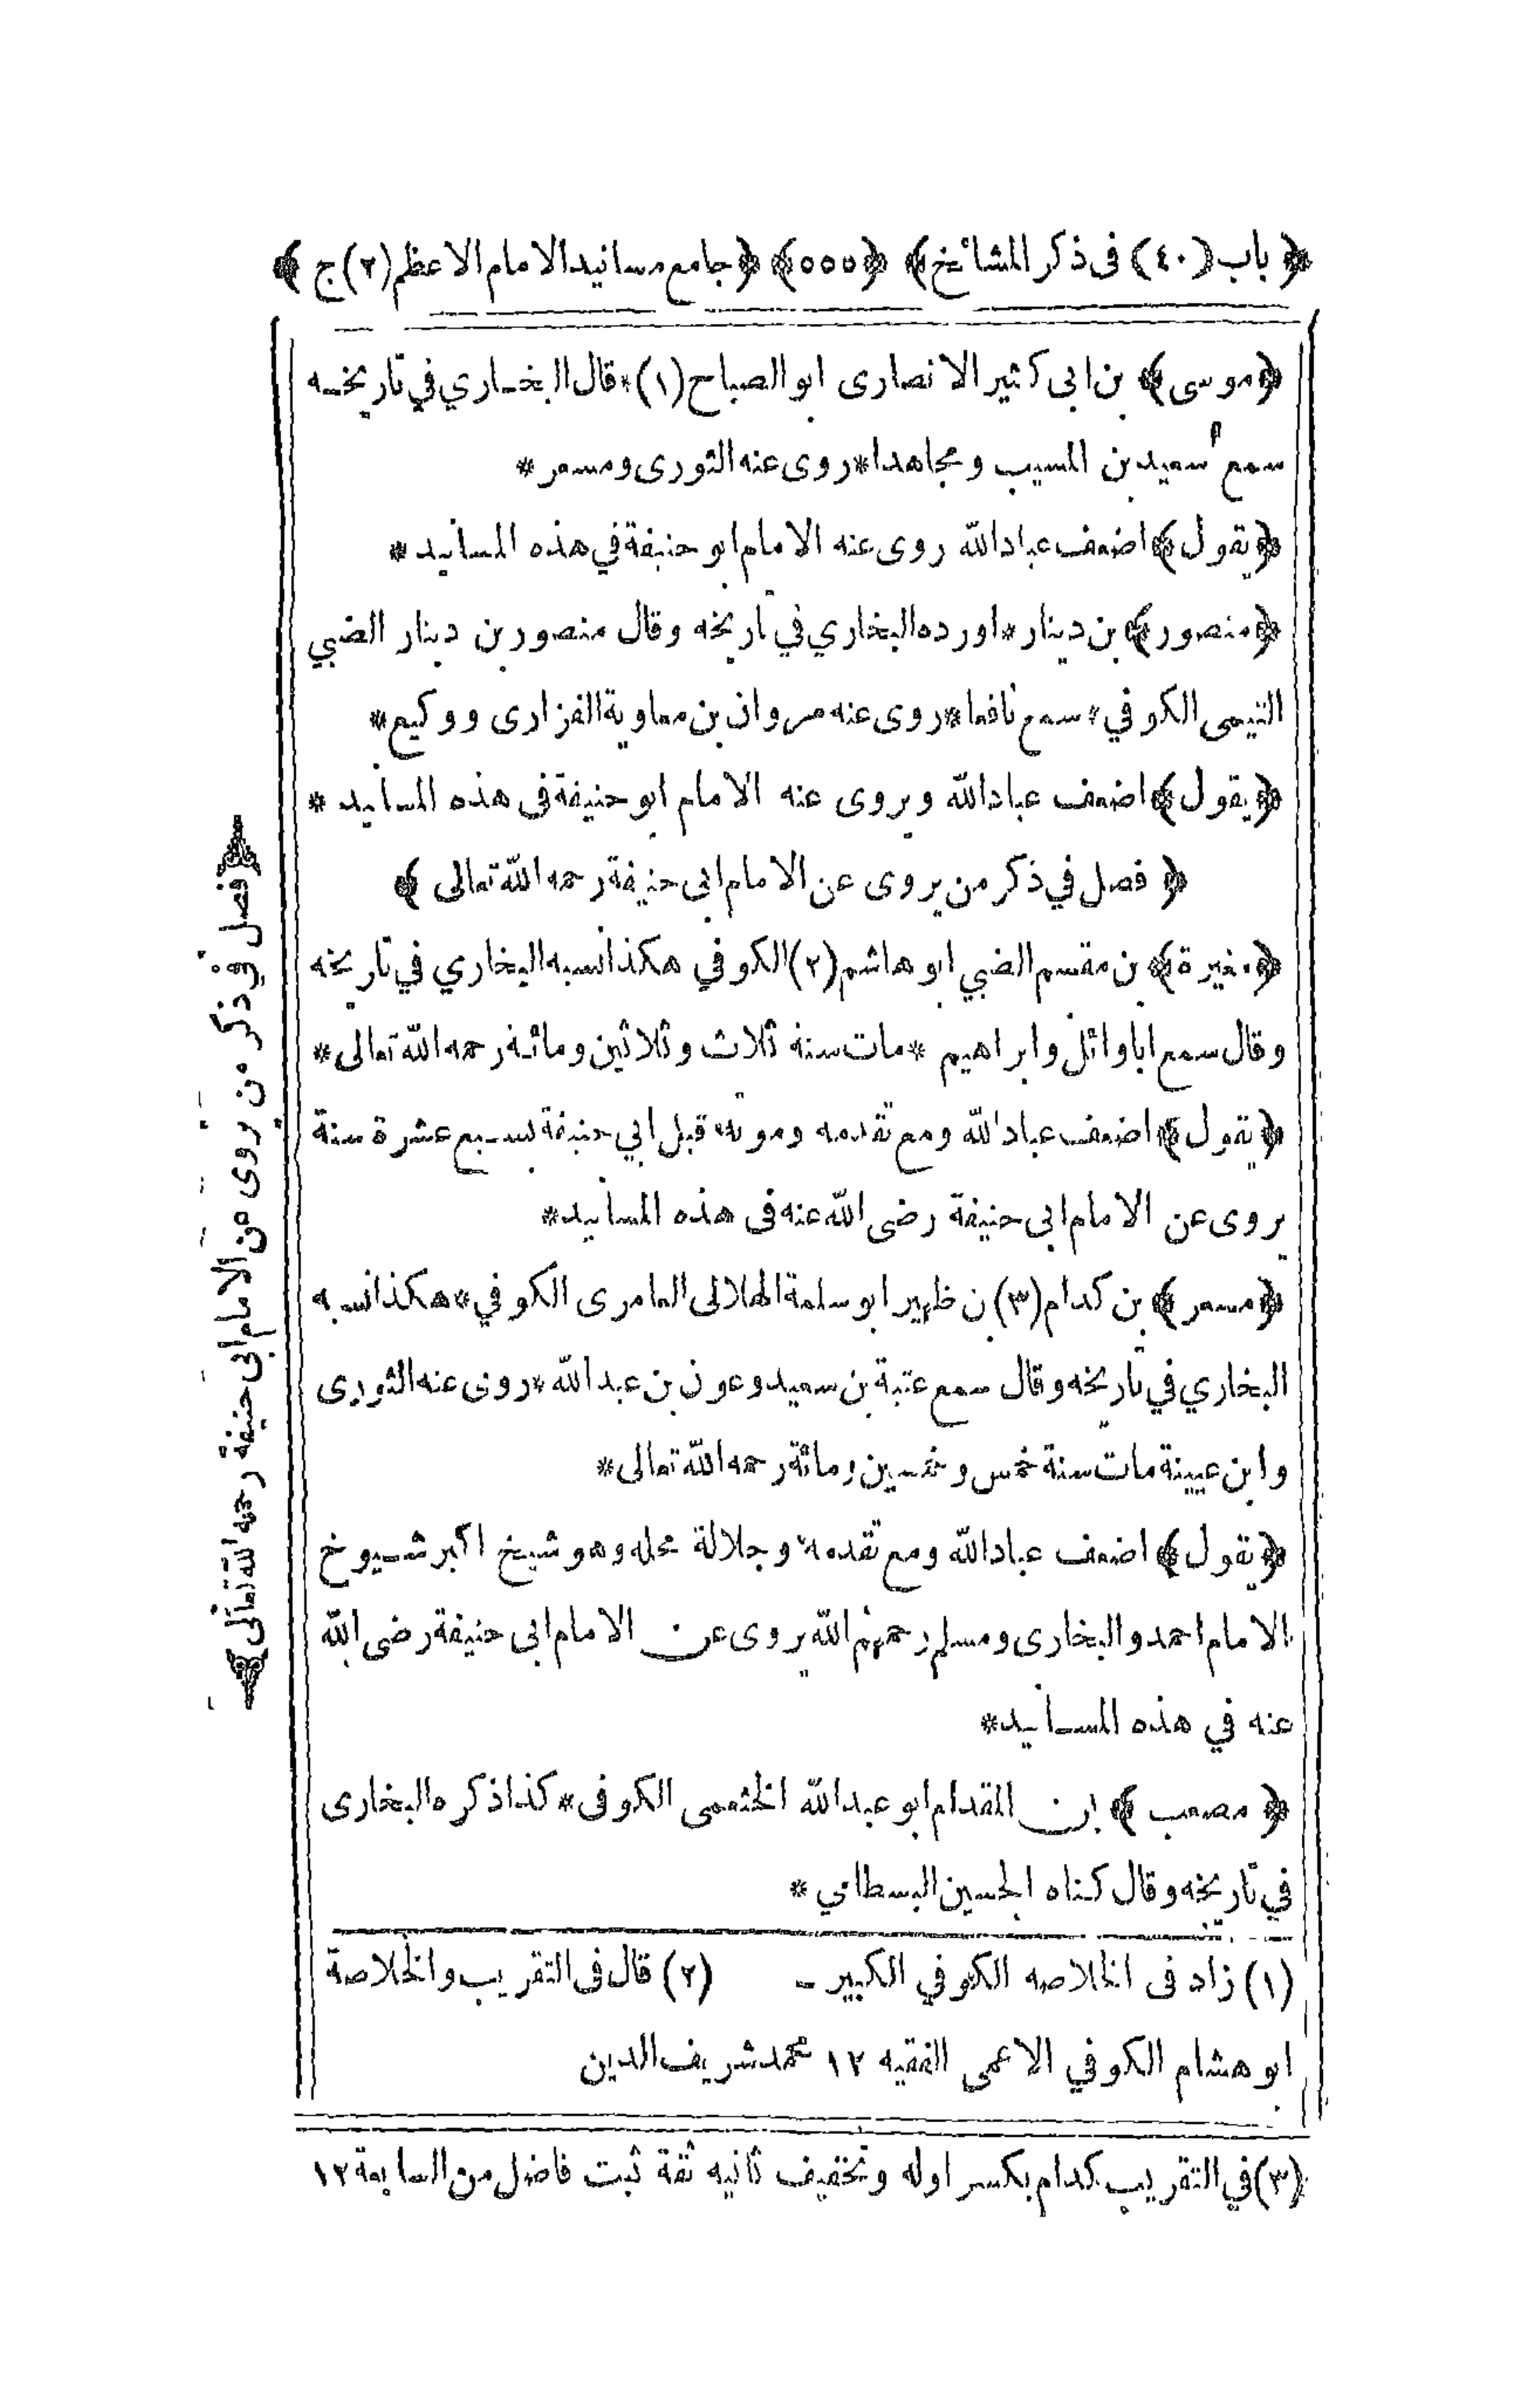 ﴿باب(٤٠)فى ذكر المشائخ﴾ ﴿٥٥٥﴾ ﴿جامع مسانيد الامام الاعظم(٢)ج﴾
﴿موسى﴾ بن ابى كثير الانصارى ابو الصباح(١)*قال البخاري في تاريخه
سمع سعيد بن المسيب ومجاهدا*روى عنه الثورى ومسعر*
﴿يقول﴾ اضعف عباد الله روى عنه الامام ابو حنيفة في هذه المسانيد*
﴿منصور﴾ بن دينار*اورده البخاري في تاريخه وقال منصور بن دينار الضبي
التيمى الكوفي*سمع نافعا*روى عنه مروان بن معاوية الفزارى ووكيع*
﴿يقول﴾ اضعف عباد الله ويروى عنه الامام ابو حنيفة فى هذه المسانيد*
﴿فصل في ذكر من يروى عن الامام ابى حنيفة رحمه الله تعالى﴾
﴿مغيرة﴾ بن مقسم الضبي ابو هاشم(٢)الكوفي هكذا نسبه البخاري في تاريخه
وقال سمع ابا وائل وابراهيم*مات سنة ثلاث وثلاثين ومائة رحمه الله تعالى*
﴿يقول﴾ اضعف عباد الله ومع تقدمه وموته قبل ابي حنيفة بسبع عشرة سنة
يروى عن الامام ابى حنيفة رضى الله عنه فى هذه المسانيد*
﴿مسعر﴾ بن كدام(٣)بن ظهير ابو سلمة الهلالى العامرى الكوفي*هكذا نسبه
البخاري في تاريخه وقال سمع عتبة بن سعيد وعون بن عبد الله*روى عنه الثورى
وابن عيينة مات سنة خمس وخمسين ومائة رحمه الله تعالى*
﴿يقول﴾ اضعف عباد الله ومع تقدمه وجلالة محله وهو شيخ اكبر شيوخ
الامام احمد والبخارى ومسلم رحمهم الله يروى عن الامام ابى حنيفة رضى الله
عنه في هذه المسانيد*
﴿مصعب﴾ ابن المقدام ابو عبد الله الخثعمى الكوفى*كذا ذكره البخارى
في تاريخه وقال كناه الحسين البسطامي*
(١) زاد فى الخلاصه الكوفي الكبير - (٢) قال فى التقريب والخلاصة
ابو هشام الكوفي الاعمى الفقيه ١٢ محمد شريف الدين
(٣)في التقريب كدام بكسر اوله وتخفيف ثانيه ثقة ثبت فاضل من السابعة ١٢
﴿فصل في ذكر من يروى عن الامام ابى حنيفة رحمه الله تعالى﴾